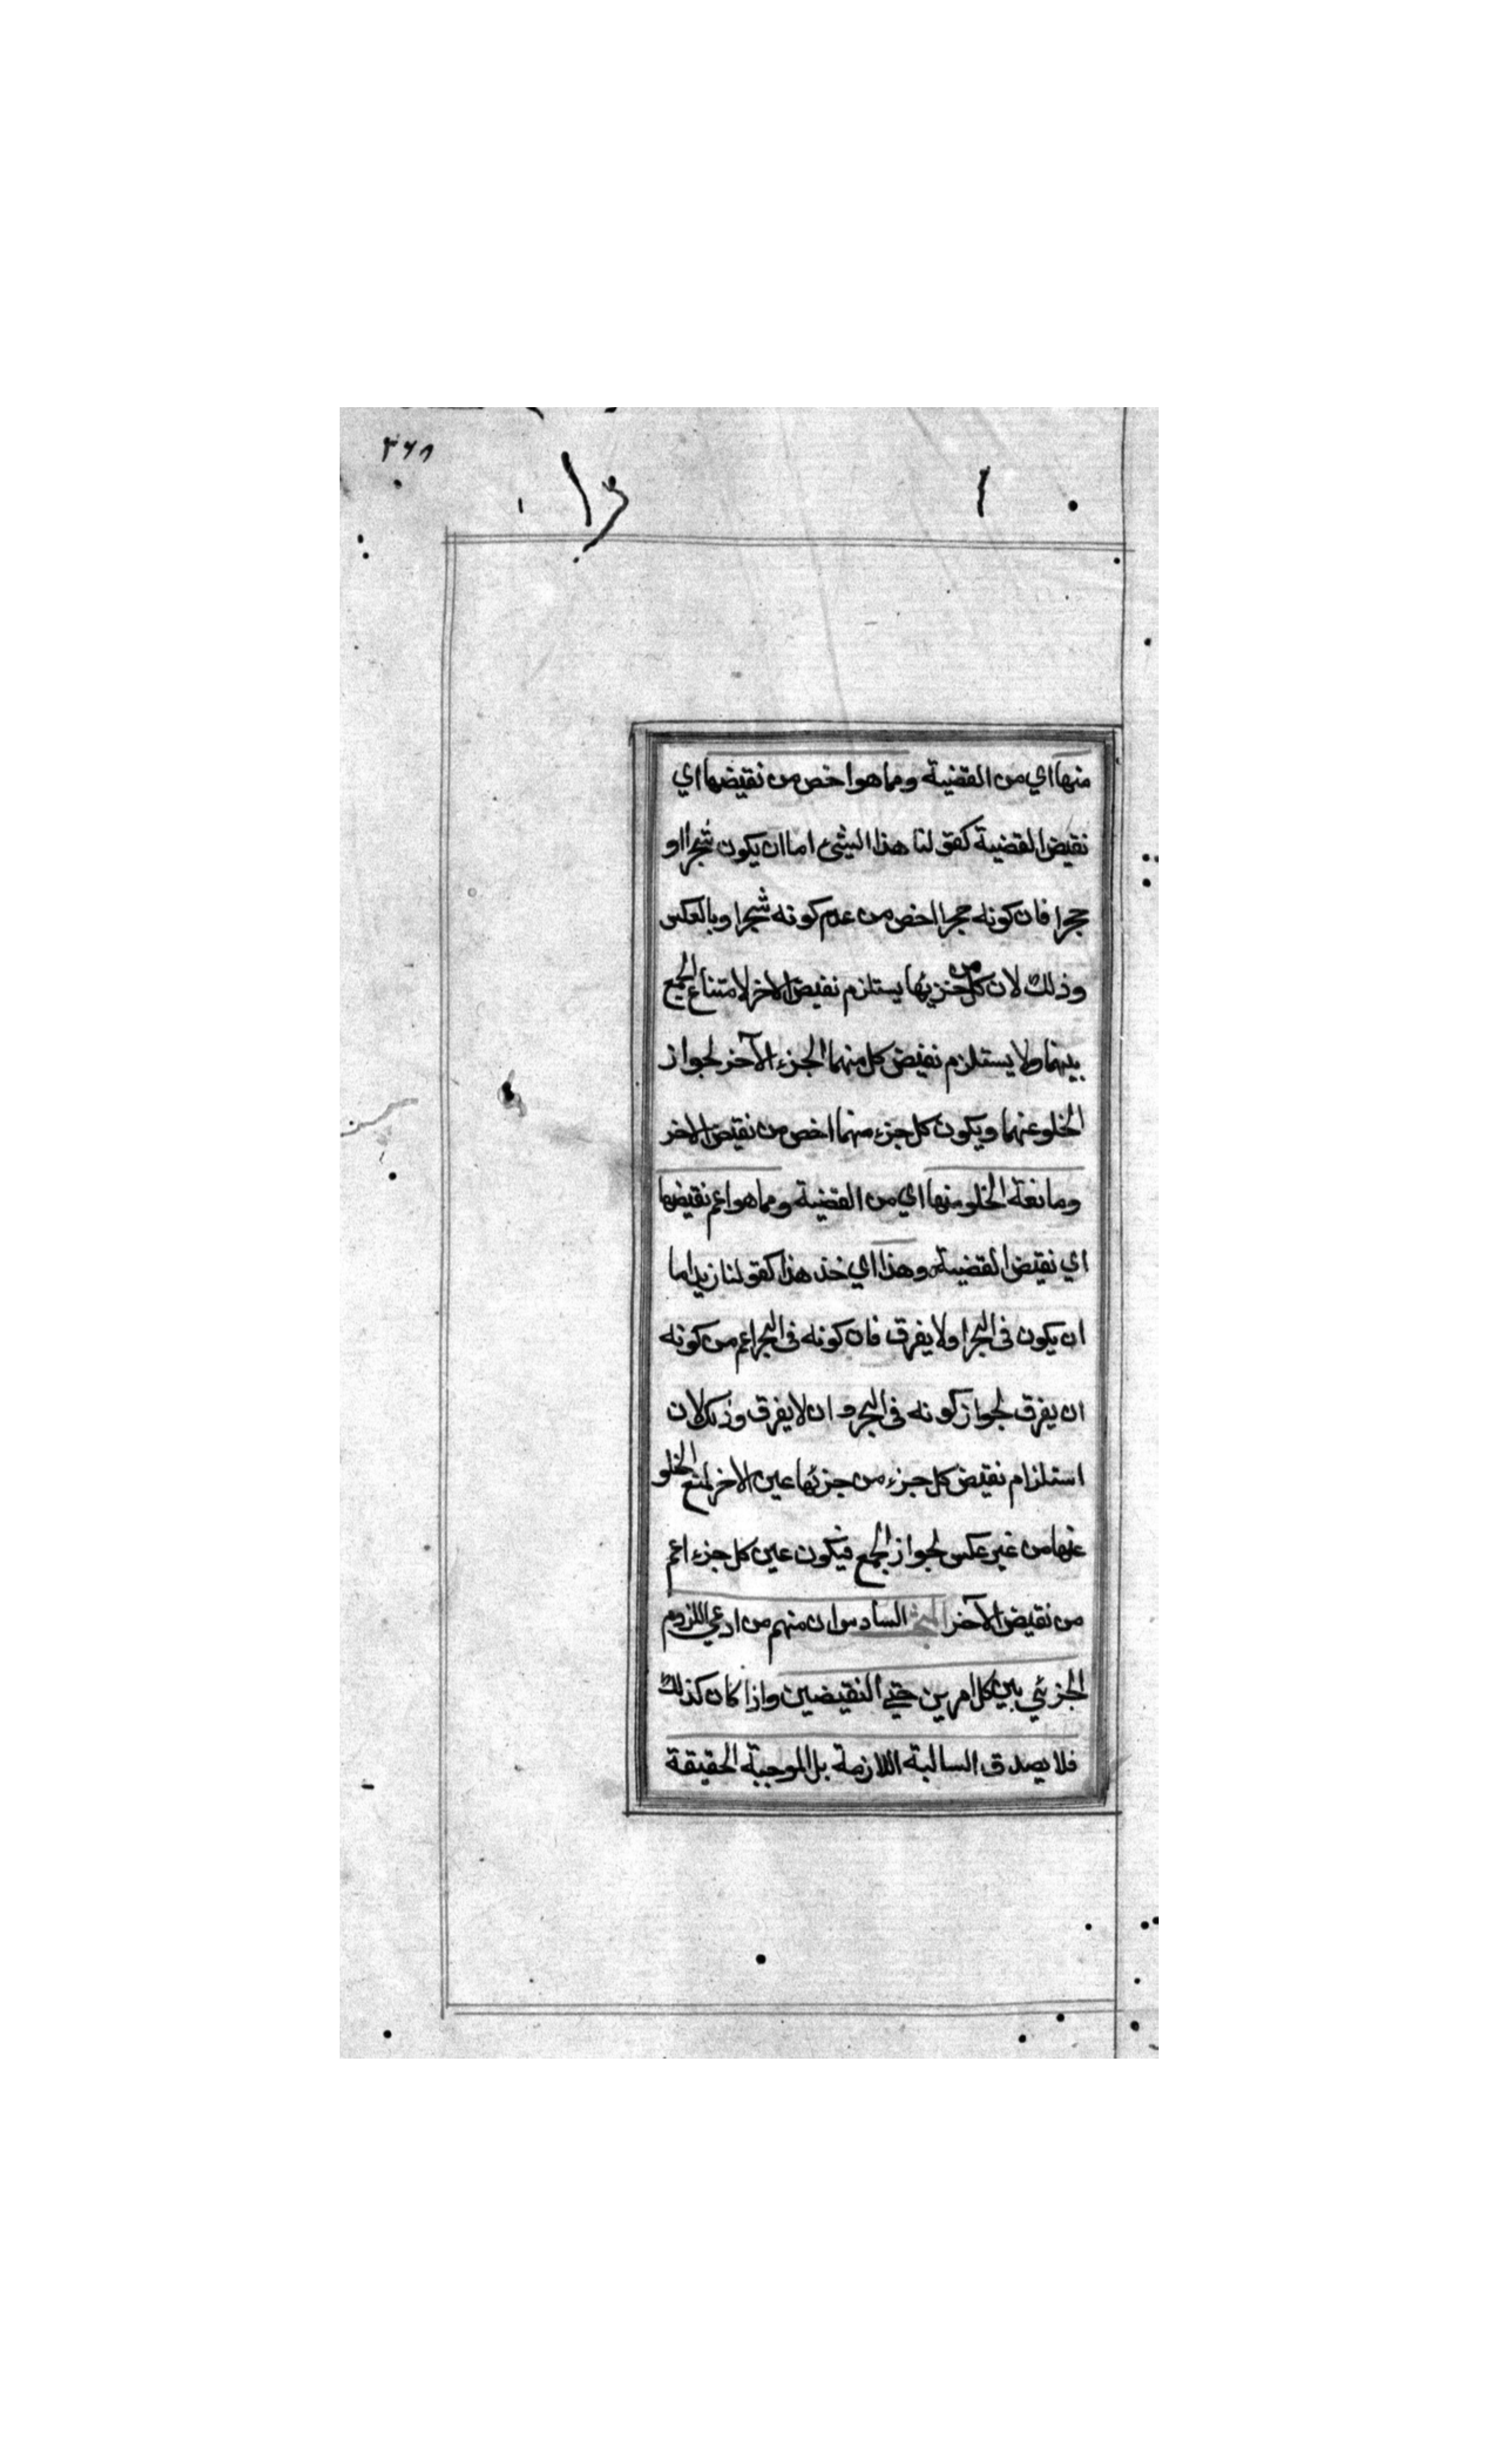 ٣٦٨
منها اي من القضية ومما هو اخص من نقيضها اي
نقيض القضية كقولنا هذا الشيء اما ان يكون شجرا او
حجرا فان كونه حجرا اخص من عدم كونه شجرا وبالعكس
وذلك لان كل من جزئيها يستلزم نقيض الاخر لامتناع الجمع
بينهما ولا يستلزم نقيض كل منهما الجزء الآخر لجواز
الخلو عنهما ويكون كل جزء منهما اخص من نقيض الاخر
ومانعة الخلو منها اي من القضية ومما هو اعم نقيضها
اي نقيض القضية وهذا اي خذ هذا كقولنا زيد اما
ان يكون في البحر او لا يغرق فان كونه في البحر اعم من كونه
ان يغرق لجواز كونه في البحر وان لا يغرق وذلك لان
استلزام نقيض كل جزء من جزئها عين الاخر لمنع الخلو
عنها من غير عكس لجواز الجمع فيكون عين كل جزء اعم
من نقيض الآخر السادس ان منهم من ادعي اللزوم
الجزئي بين كل امرين حتي النقيضين واذا كان كذلك
فلا يصدق السالبة اللازمة بل الموجبة الحقيقة